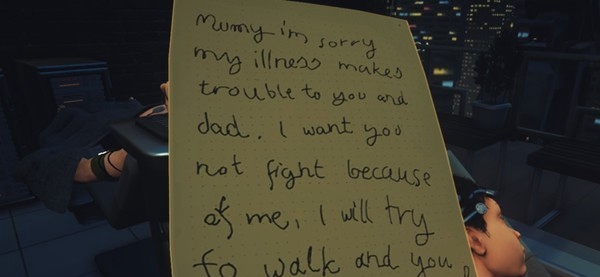 Mumy i'm sorry
my illness makes
trouble to you and
dad. I want you
not fight because
of me, I will try
to walk and you